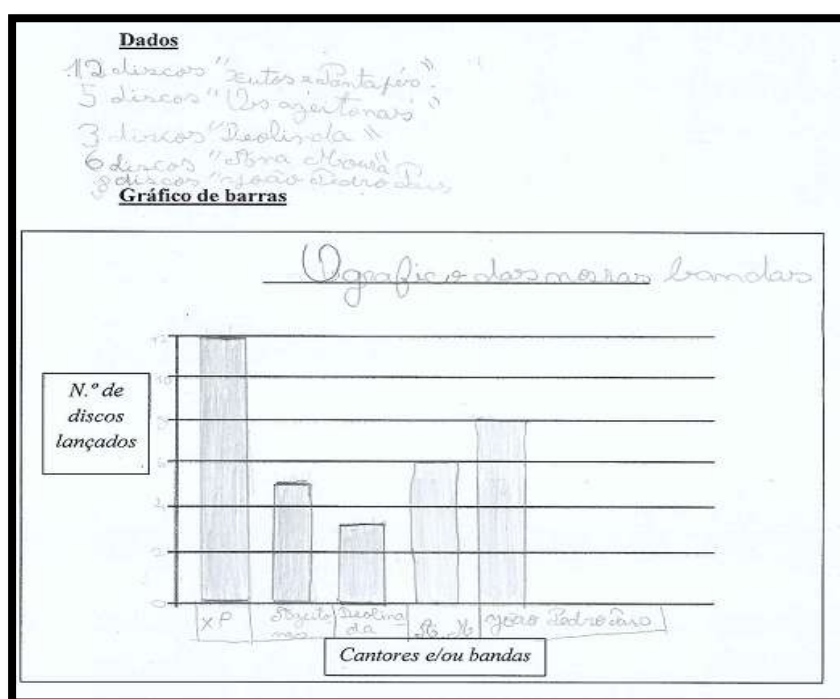 Dados
12 discos "Xutos e Pontapés"
5 discos "Os azeitonas"
3 discos "Deolinda"
6 discos "Ana Moura"
8 discos "João Pedro Pais
Gráfico de barras
O grafico das nossas bandas
N.º de
discos
lançados
12
10
8
6
4
2
0
XP
Azeito
nas
Deolin
da
A. M
João Pedro Pais
Cantores e/ou bandas